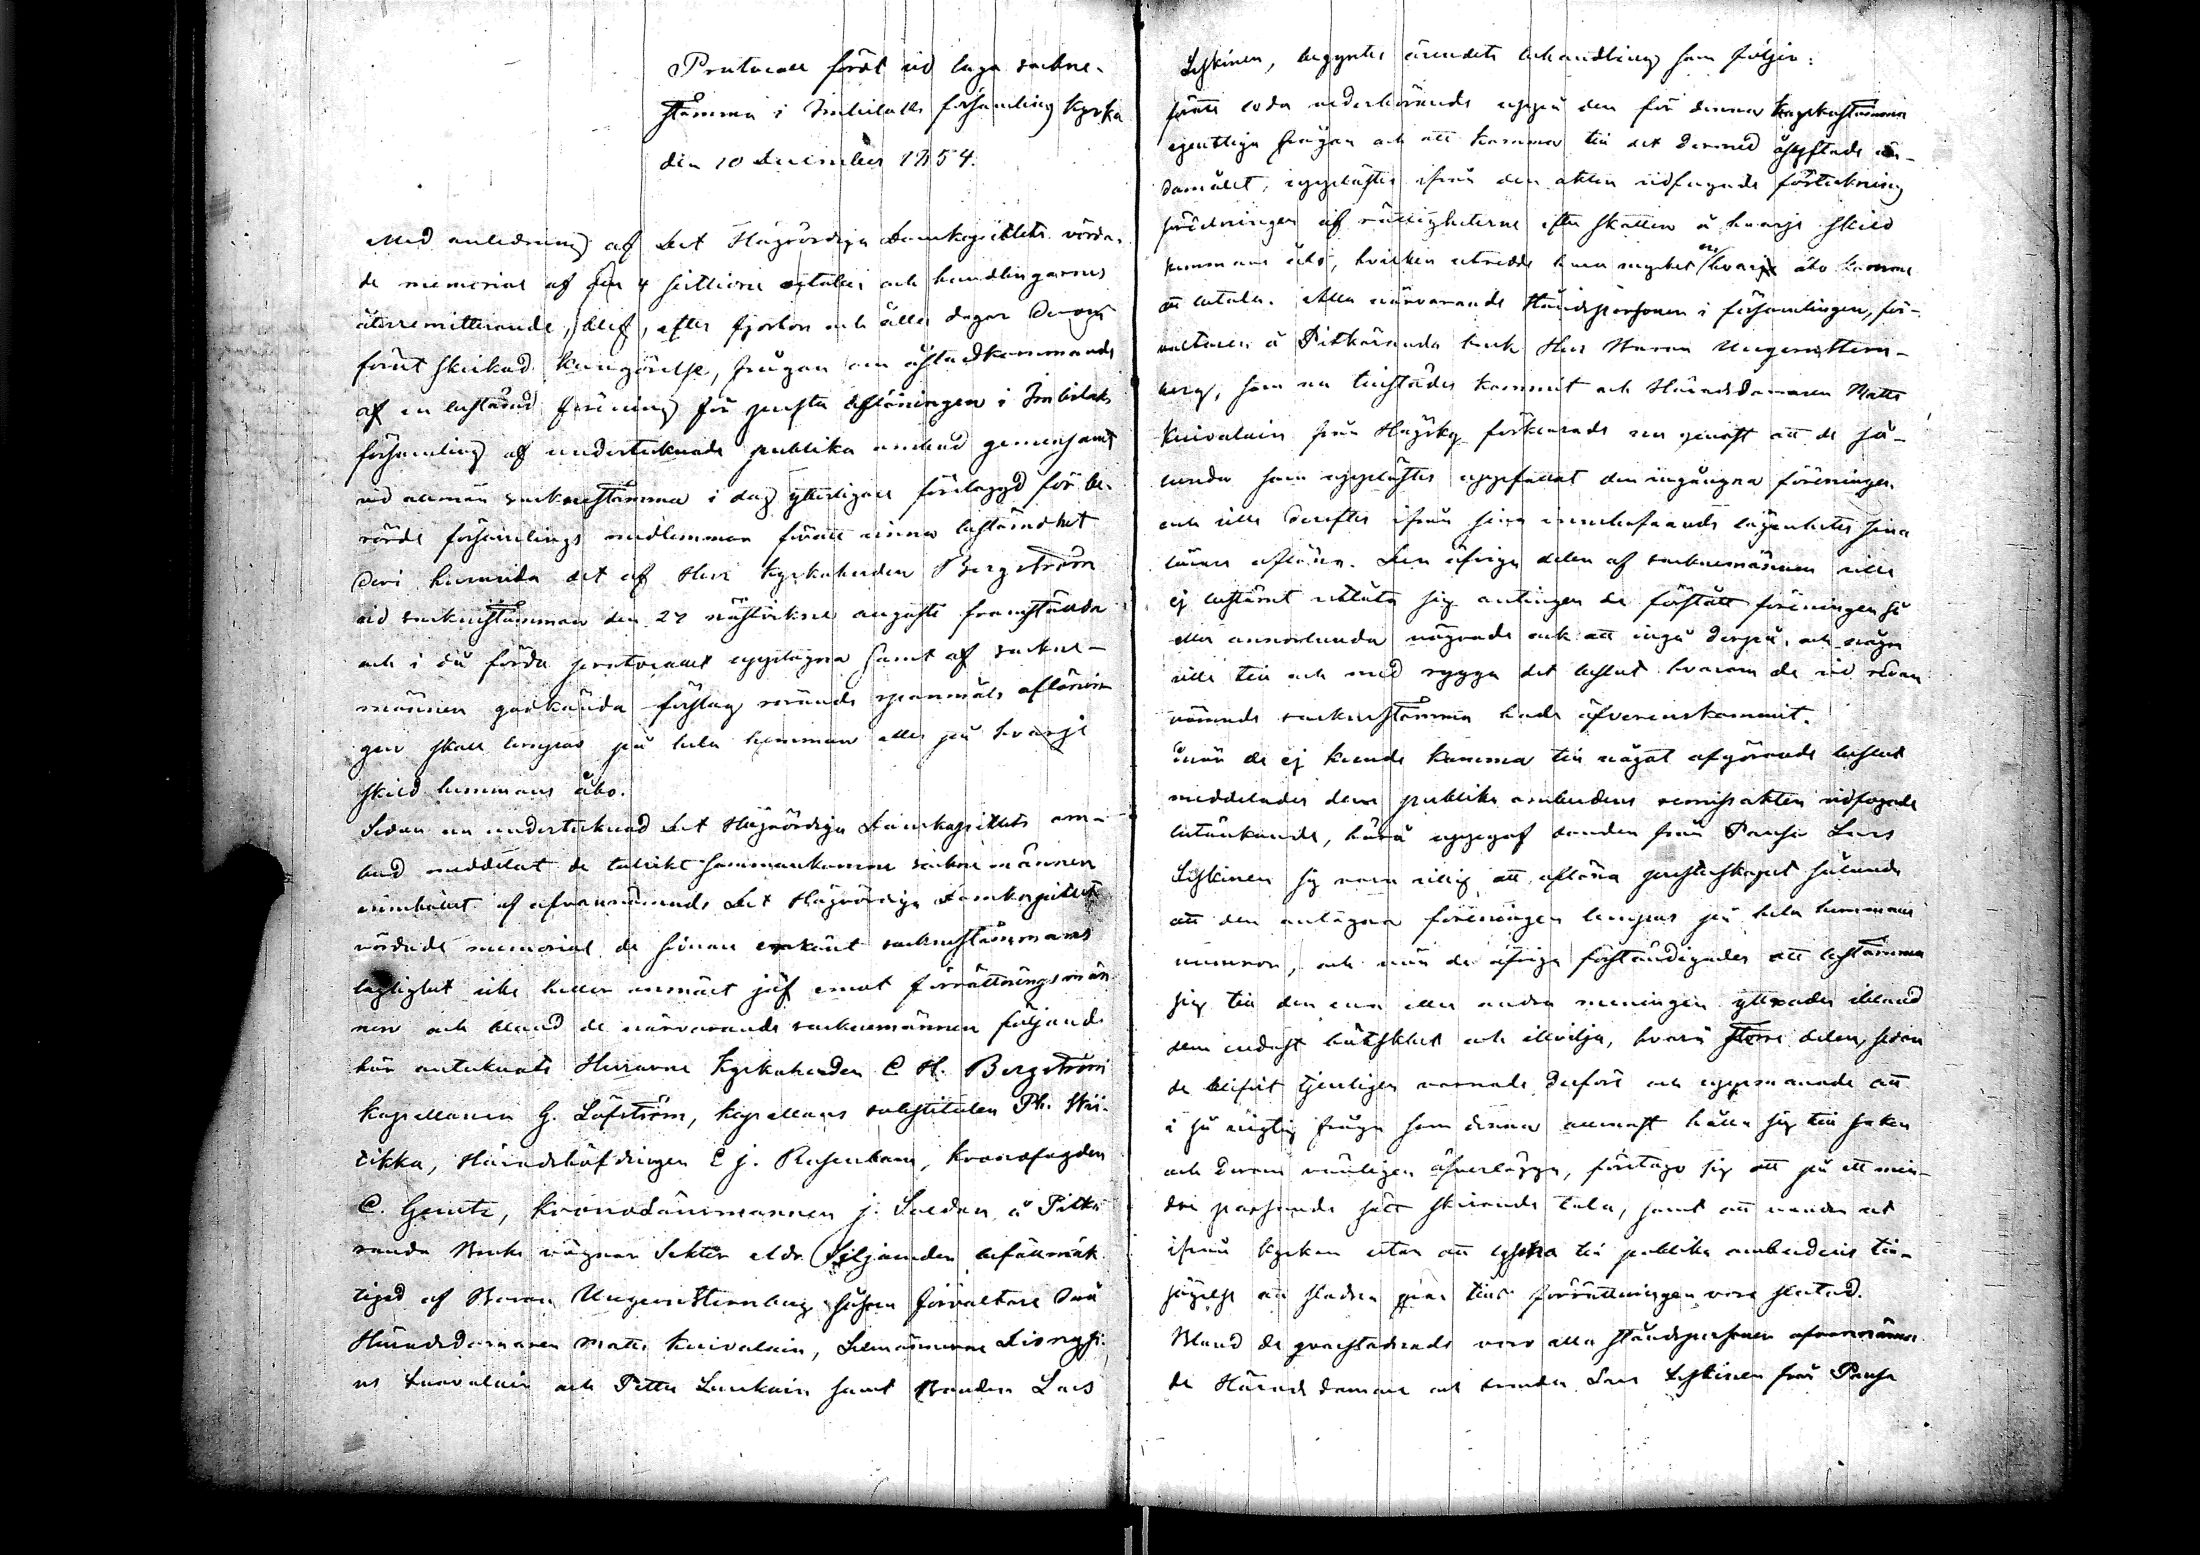 Protocoll fördt vid laga sockne-
stämma i Imbilaks församling kyrka
den 10 December 1854.
Med anledning af Det Högvördiga Domkapitlets vörda-
de memorial af den 4 sistliden october och handlingarnes
återremitterande, blef, efter fjorton och åtta dagar derom
förut skickad kungörelse, frågan om åstadkommande
af en bestämd förening för presta aflöningen i Imbilaks
församling af undertecknade publika ombud gemensamt
vid allmän socknestämma i dag ytterligare förelaggd för be-
rörde församlings medlemmar föratt vinna bestämdhet
deri huruvida det af Herr Kyrkoherden Bergström
vid socknestämman den 27 nästvikne augusti framställda
och i då förda protocollet upptagna samt af sockne-
männen godkända förslag rörande spanmåls aflönin-
gen skall lämpas på hela hemman eller på hvarje
skild hemmans åbo.
Sedan en undertecknad Det Högvördiga Domkapitlets om-
bud meddelat de talrikt sammankomne sockne männen
innehållet af ofvannämnde Det Högvördiga Domkapitlets
vördade memorial de sinan erkänt socknestämmans
laglighet icke heller anmält jäf emot förrättningsmän
nen och bland de närvarande socknemännen följande
här antecknats Herrarne Kyrkoherden C H. Bergström
Kapellanen G. Löfström, kapellans substituten Ph. Wii-
tikka, Häradshöfdingen C J. Rosenbom, kronofogden
C. Gentz, kronoLänsmannen J. Soldan å Pitkä
randa Bruks vägnar Sektör eldr Siljander befullmäk
tigad af Baron UngernSternberg såsom förvaltare derå
Häradsdomaren Matts Kuivalain, Sexmännerne Dionysi-
us Suovalain och Petter Laukain samt Bonden Lars
Leskinen, begyntes ärendets behandling som följer:
föratt leda vederbörande uppå den för denna Kyrkostämma
egentliga frågan och att komma till det dermed åsyftade än-
damålet, upplästes ifrån den akten vidfogade förteckning
fördelningen af rättigheterne efter skatten å hvarje skild
hemmans åbo, hvilken utredde huru mycket en hvarje åbo komme
att betala. Alla närvarande Ståndspersoner i församlingen, för-
valtaren å Pitkäranda bruk Herr Baron Ungern Stern-
berg, som nu tillstädes kommit och Häradsdomaren Matts
Kuivalain från Högsky förklarade nu genast att de så-
lunda som upplästes uppfattat den ingångna föreningen
och ville derefter ifrån sina innehafvande lägenheter sina
löner aflöna. Den öfriga delen af socknemännen ville
ej bestämdt utlåta sig antingen de förstått föreningen så
eller annorlunda vägrade ock att ingå derpå, och någon
ville till och med rygga det beslut hvarom de vid redan
nämnde socknestämma hade öfverenskommit.
Enär de ej kunde komma till något afgörande beslut
meddelades dem publika ombudens remissakten vidfogade
betänkande, härå uppgaf bonden från Pensa Lars
Leskinen sig vara villig att aflöna presterskapet sålunde
att den antagna föreningen lämpas på hela hemmans
nummern, och när de öfriga förständigades att bestämma
sig till den ena eller andra meningen yttrades ibland
dem endast hätskhet och illvilja, hvarå större delen, sedan
de blifvit tjenligen varnade derföre och uppmanade att
i så vigtig fråga som denna allenast hålla sig till saken
och derom vänligen öfverlägga, företogo sig att på ett min-
dre passande sätt skriande tala, samt att vandra ut
ifrån kyrkan utan att lyssna till publika ombudens till-
sägelse att stadna qvar tills förrättningen vore slutad.
Bland de qvarstadnade voro alla ståndspersoner ofvannämn-
de Härads domare och bonden Lars Leskinen från Pensa